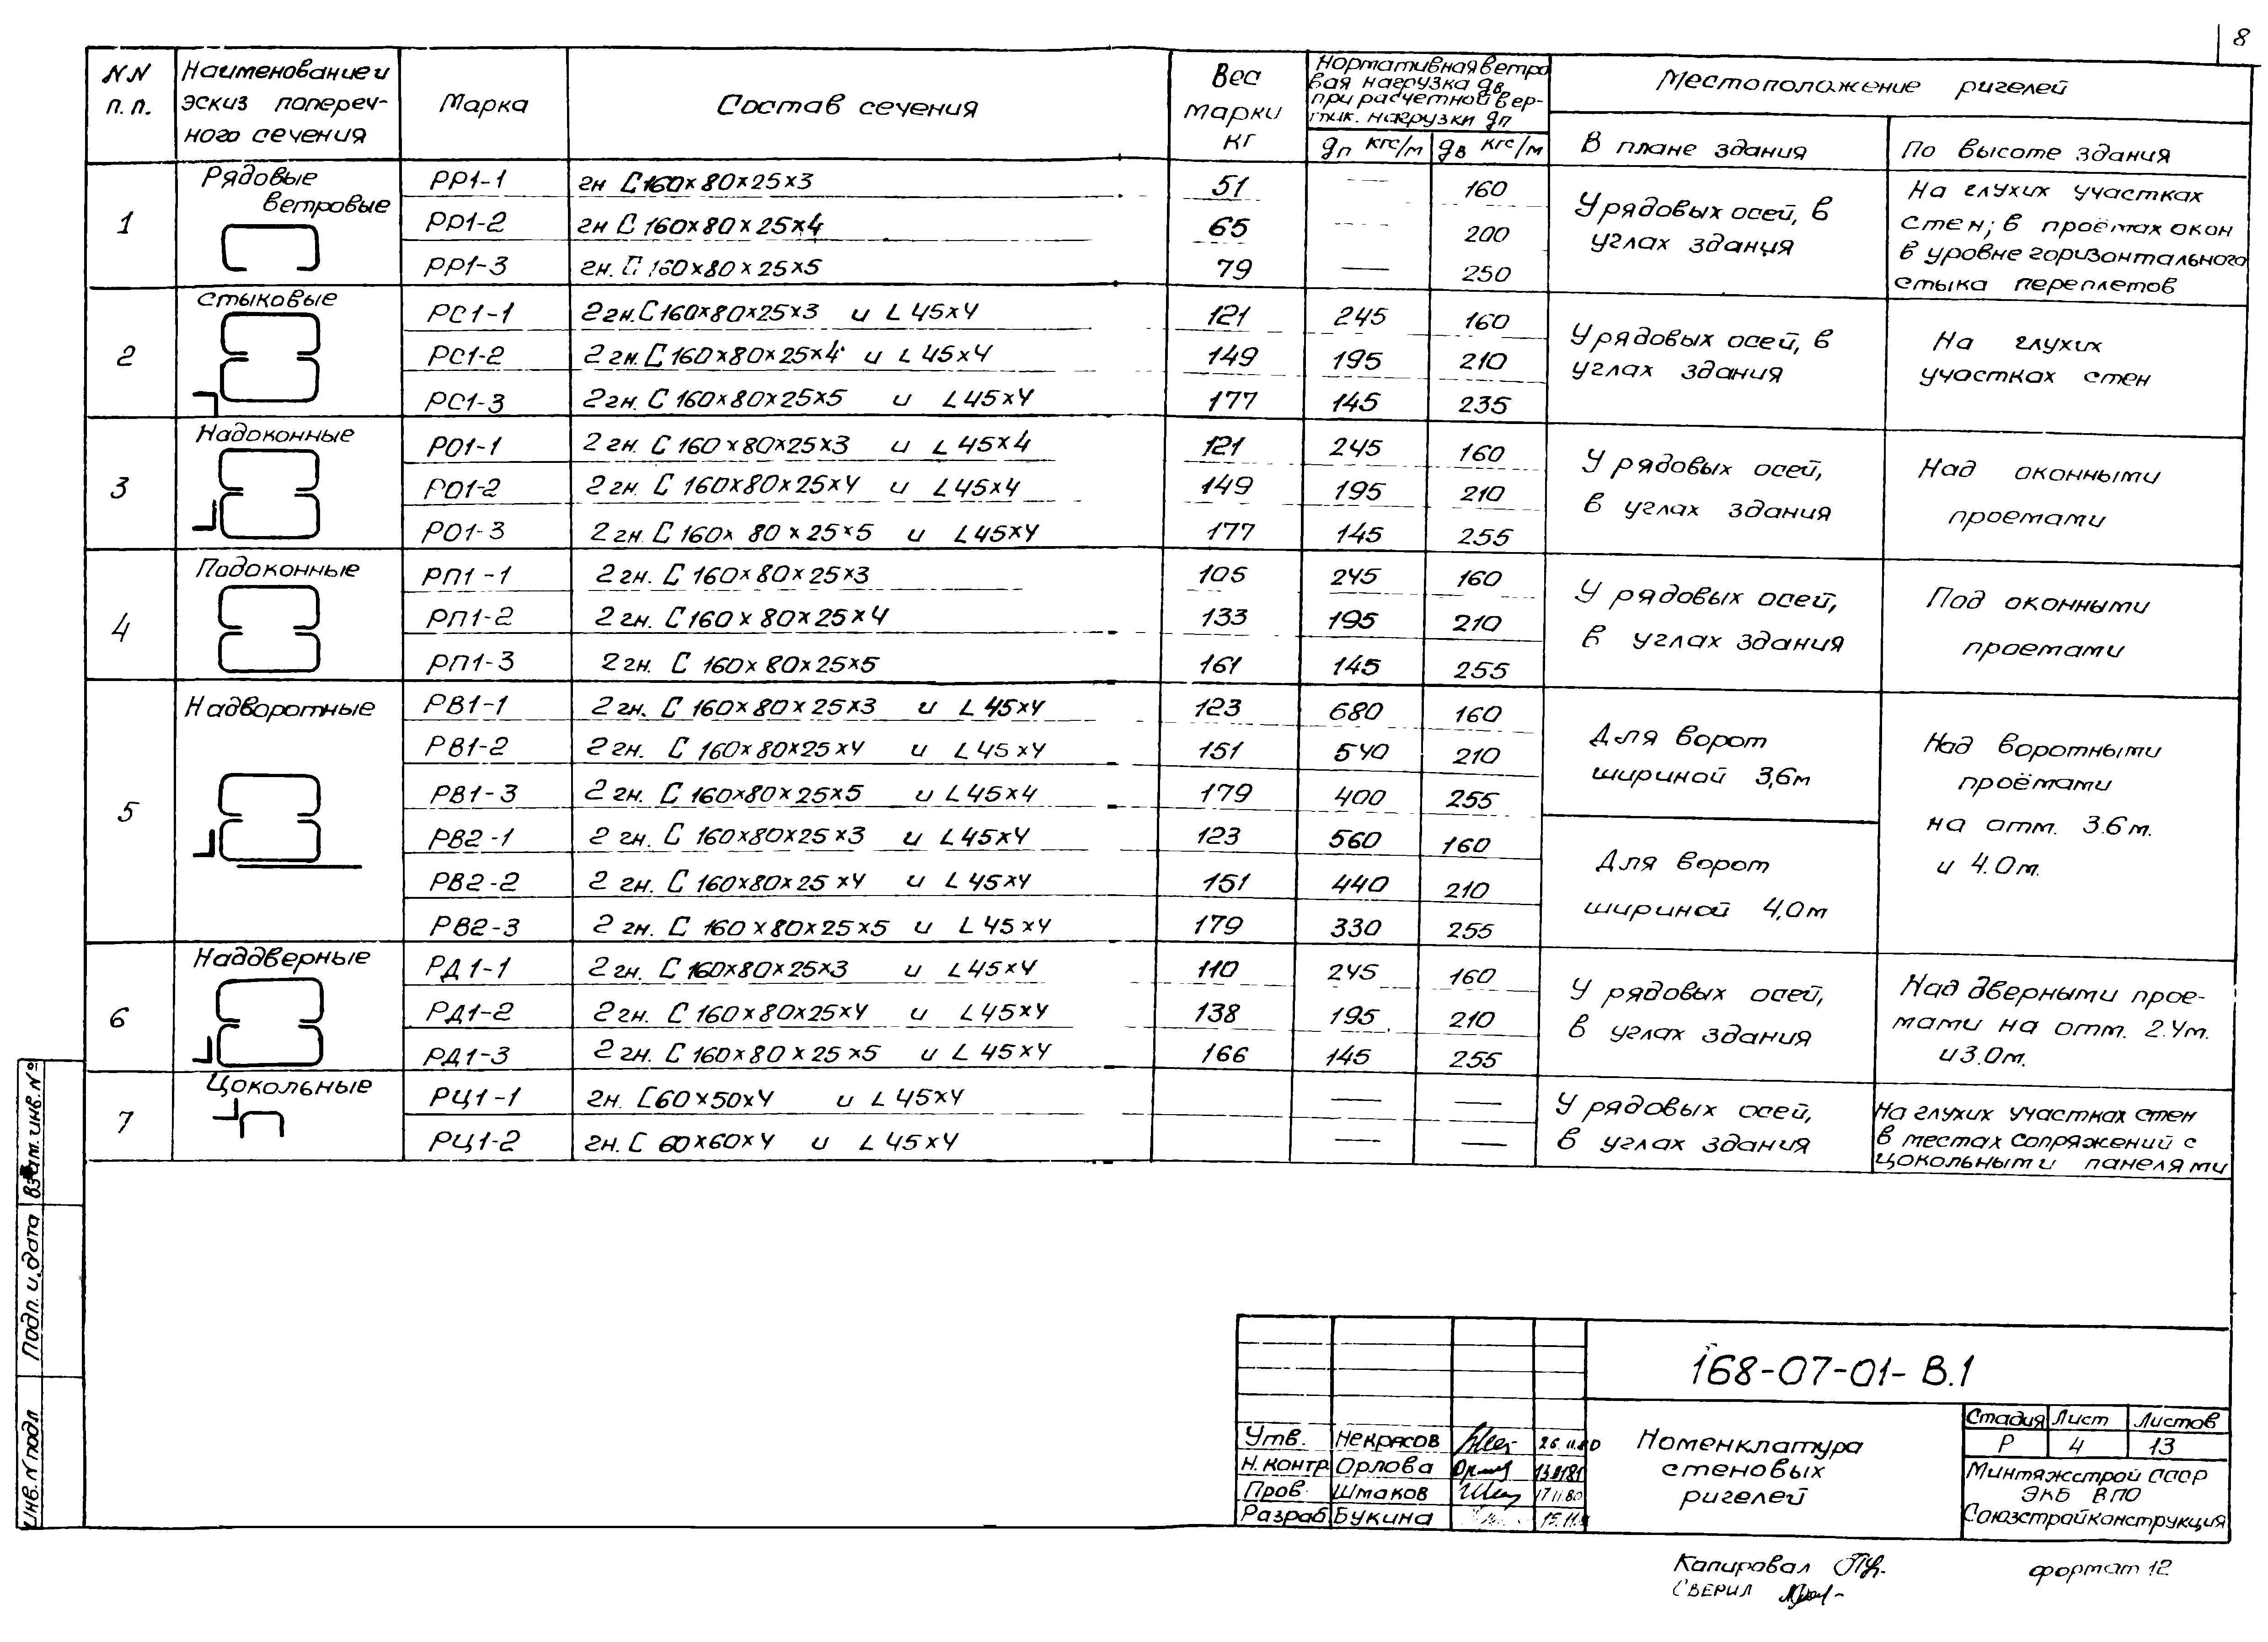 8
NN п.п. Наименование и эскиз попереч-ного сечения Марка Состав сечения Вес марки кг Нормативная ветро вая нагрузка gв при расчетной вер-тик. нагрузки gп Местоположение ригелей
gп кгс/м gв кгс/м В плане здания По высоте здания
1 Рядовые ветровые
РР1-1 гн С160×80×25×3 51 — 160
РР1-2 гн С 160×80×25×4 65 — 200
РР1-3 гн. С 160×80×25×5 79 — 250
У рядовых осей, в
углах здания
На глухих участках
стен; в проёмах окон
в уровне горизонтального
стыка переплетов
2 Стыковые
РС1-1 2гн. С160×80×25×3 и L45×4 121 245 160
РС1-2 2 гн. С 160×80×25×4 и L45×4 149 195 210
РС1-3 2гн. С 160×80×25×5 и L45×4 177 145 235
У рядовых осей, в
углах здания
На глухих
участках стен
3 Надоконные
РО1-1 2 гн. С 160×80×25×3 и L45×4 121 245 160
РО1-2 2 гн. С 160×80×25×4 и L45×4 149 195 210
РО1-3 2 гн. С 160×80×25×5 и L45×4 177 145 255
У рядовых осей,
в углах здания
Над оконными
проемами
4 Подоконные
РП1-1 2 гн. С 160×80×25×3 105 245 160
РП1-2 2 гн. С 160×80×25×4 133 195 210
РП1-3 2 гн. С 160×80×25×5 161 145 255
У рядовых осей,
в углах здания
Под оконными
проемами
5 Надворотные
РВ1-1 2 гн. С 160×80×25×3 и L45×4 123 680 160
РВ1-2 2 гн. С 160×80×25×4 и L45×4 151 540 210
РВ1-3 2 гн. С 160×80×25×5 и L45×4 179 400 255
РВ2-1 2 гн. С 160×80×25×3 и L45×4 123 560 160
РВ2-2 2 гн. С 160×80×25×4 и L45×4 151 440 210
РВ2-3 2 гн. С 160×80×25×5 и L45×4 179 330 255
Для ворот
шириной 3,6м
Для ворот
шириной 4,0м
Над воротными
проёмами
на отм. 3.6м.
и 4.0м.
6 Наддверные
РД1-1 2гн. С 160×80×25×3 и L45×4 110 245 160
РД1-2 2гн. С 160×80×25×4 и L45×4 138 195 210
РД1-3 2 гн. С 160×80×25×5 и L45×4 166 145 255
У рядовых осей,
в углах здания
Над дверными прое-
мами на отм. 2.4м.
и 3.0м.
7 Цокольные
РЦ1-1 гн. С60×50×4 и L45×4 — —
РЦ1-2 гн. С 60×60×4 и L45×4 — —
У рядовых осей,
в углах здания
На глухих участках стен
в местах сопряжений с
цокольными панелями
Инв. N подл Подп. и дата Взам. инв. №
168-07-01-В.1
Утв. Некрасов 26.11.80
Н. контр Орлова 13.01.81
Пров. Шмаков 17.11.80
Разраб. Букина 15.11
Номенклатура
стеновых
ригелей
Стадия Лист Листов
Р 4 13
Минтяжстрой СССР
ЭКБ ВПО
Союзстройконструкция
Копировал
Сверил
формат 12